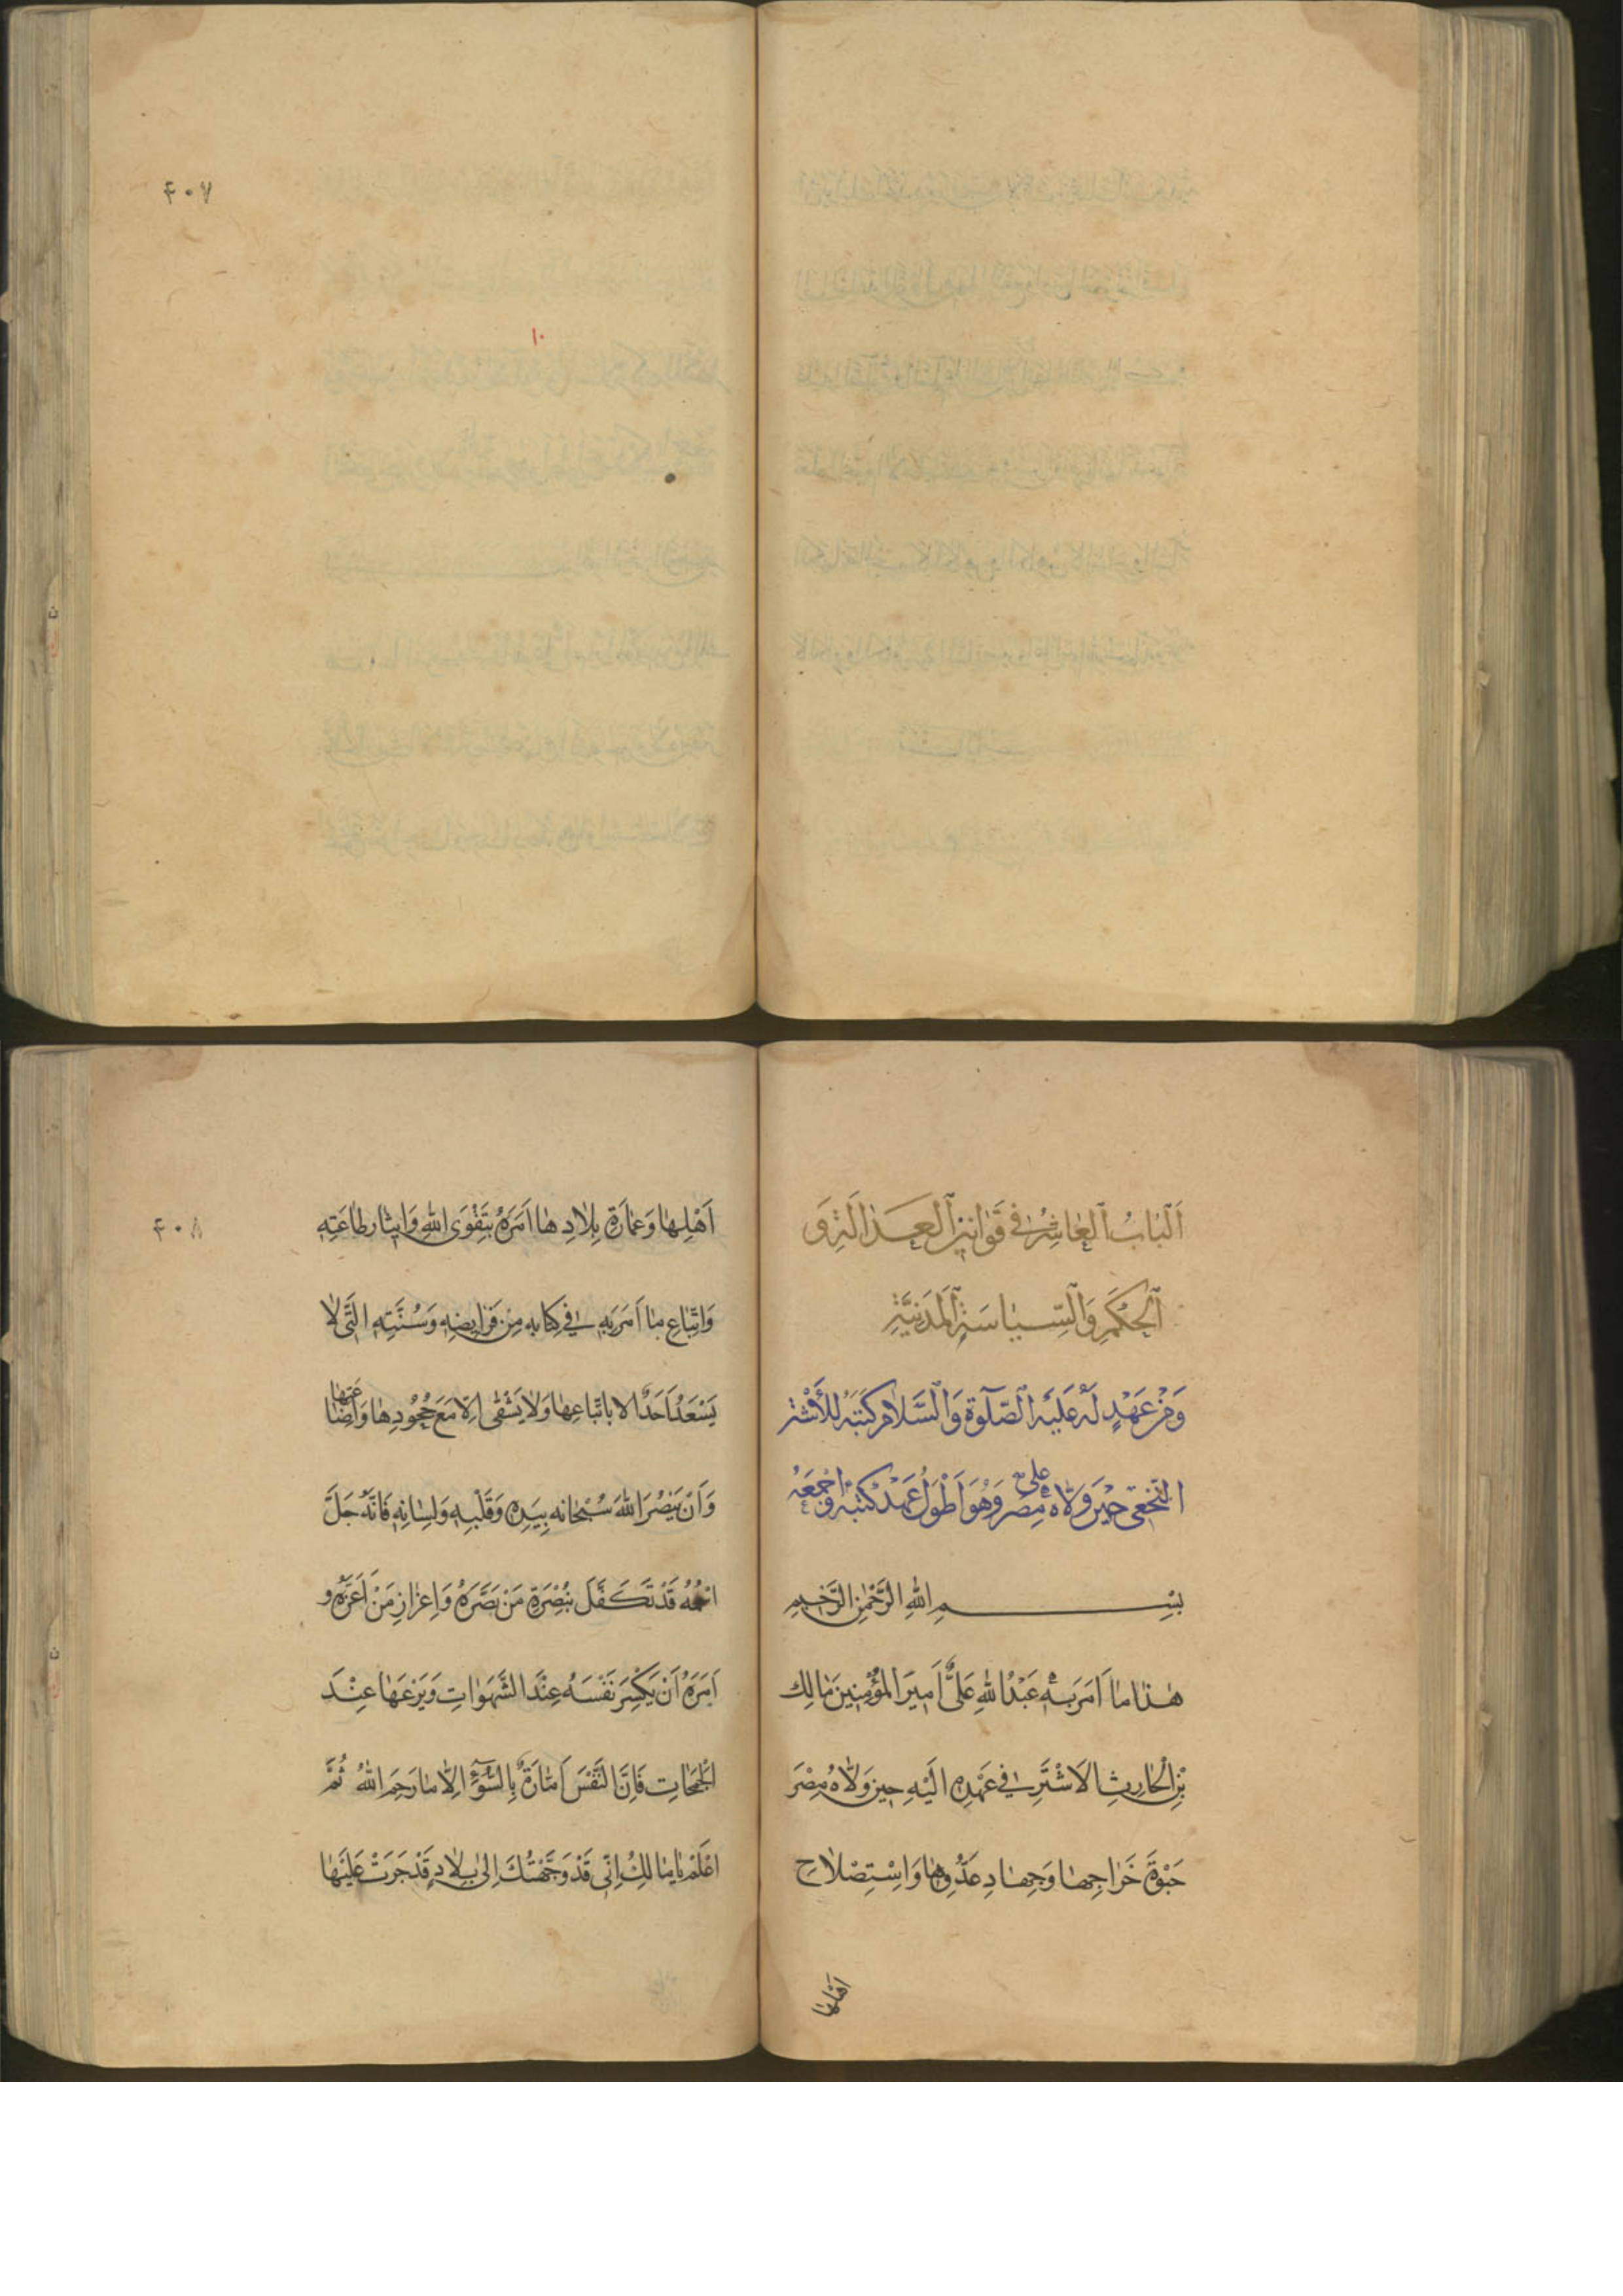 ۴۰۷
۱۰
اَلْبٰابُ ٱلْعٰاشِرُ فِي قَوٰانِينِ ٱلْعَدٰالَةِ وَ
ٱلْحُكْمِ وَٱلسِّيٰاسَةِ ٱلْمَدَنِيَّةِ
وَمِنْ عَهْدٍ لَهُ عَلَيْهِ ٱلصَّلٰوةُ وَٱلسَّلَامُ كَتَبَهُ لِلْأَشْتَرِ
النَّخَعِيِّ حِيْنَ وَلّٰاهُ عَلٰى مِصْرَ وَهُوَ اَطْوَلُ عَهْدٍ كَتَبَهُ وَاَجْمَعُهُ
بِسْمِ اللهِ الرَّحْمٰنِ الرَّحِيمِ
هٰذٰا مٰا اَمَرَ بِهٖ عَبْدُ اللهِ عَلِيٌّ اَمِيرَ الْمُؤْمِنِينَ مٰالِك
بْنِ الْحٰارِثِ الْاَشْتَرِ فِي عَهْدِهِ اِلَيْهِ حِينَ وَلّٰاهُ مِصْرَ
جَبْوَةَ خَرٰاجِهٰا وَجِهٰادِ عَدُوِّهٰا وَاسْتِصْلٰاحِ
اَهْلِهٰا
۴۰۸
اَهْلِهٰا وَعِمٰارَةِ بِلٰادِهٰا اَمَرَهُ بِتَقْوَى اللهِ وَاِيثٰارِ طٰاعَتِهِ
وَاتِّبٰاعِ مٰا اَمَرَ بِهِ فِي كِتٰابِهِ مِنْ فَرٰايِضِهِ وَسُنَنِهِ الَّتِي لٰا
يَسْعَدُ اَحَدٌ الا بِاتِّبٰاعِهٰا وَلٰا يَشْقٰى اِلّٰا مَعَ جُحُودِهٰا وَاِضٰاعَتِهٰا
وَاَنْ يَنْصُرَ اللهَ سُبْحٰانه بِيَدِهِ وَقَلْبِهِ وَلِسٰانِهِ فَاِنَّهُ جَلَّ
اسْمُهُ قَدْ تَكَفَّلَ بِنُصْرَةِ مَنْ نَصَرَهُ وَاِعْزٰازِ مَنْ اَعَزَّهُ و
اَمَرَهُ اَنْ يَكْسِرَ نَفْسَهُ عِنْدَ الشَّهَوٰاتِ وَيَزَعَهٰا عِنْدَ
الْجَمَحٰاتِ فَاِنَّ النَّفْسَ اَمّٰارَةٌ بِالسُّوۤءِ اِلّٰا مٰا رَحِمَ اللهُ ثُمَّ
اعْلَمْ يٰا مٰالِكُ اِنِّي قَدْ وَجَّهْتُكَ اِلٰى بِلٰادٍ قَدْ جَرَتْ عَلَيْهٰا